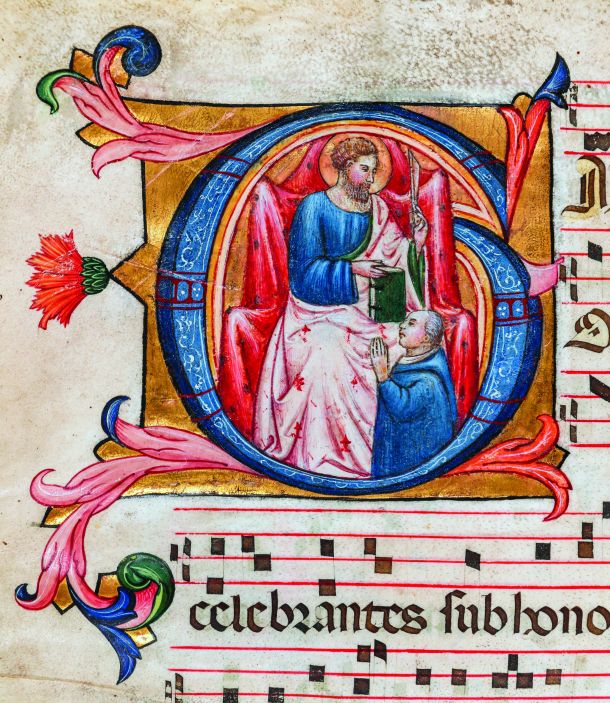 G A
celebrantes ſub hono